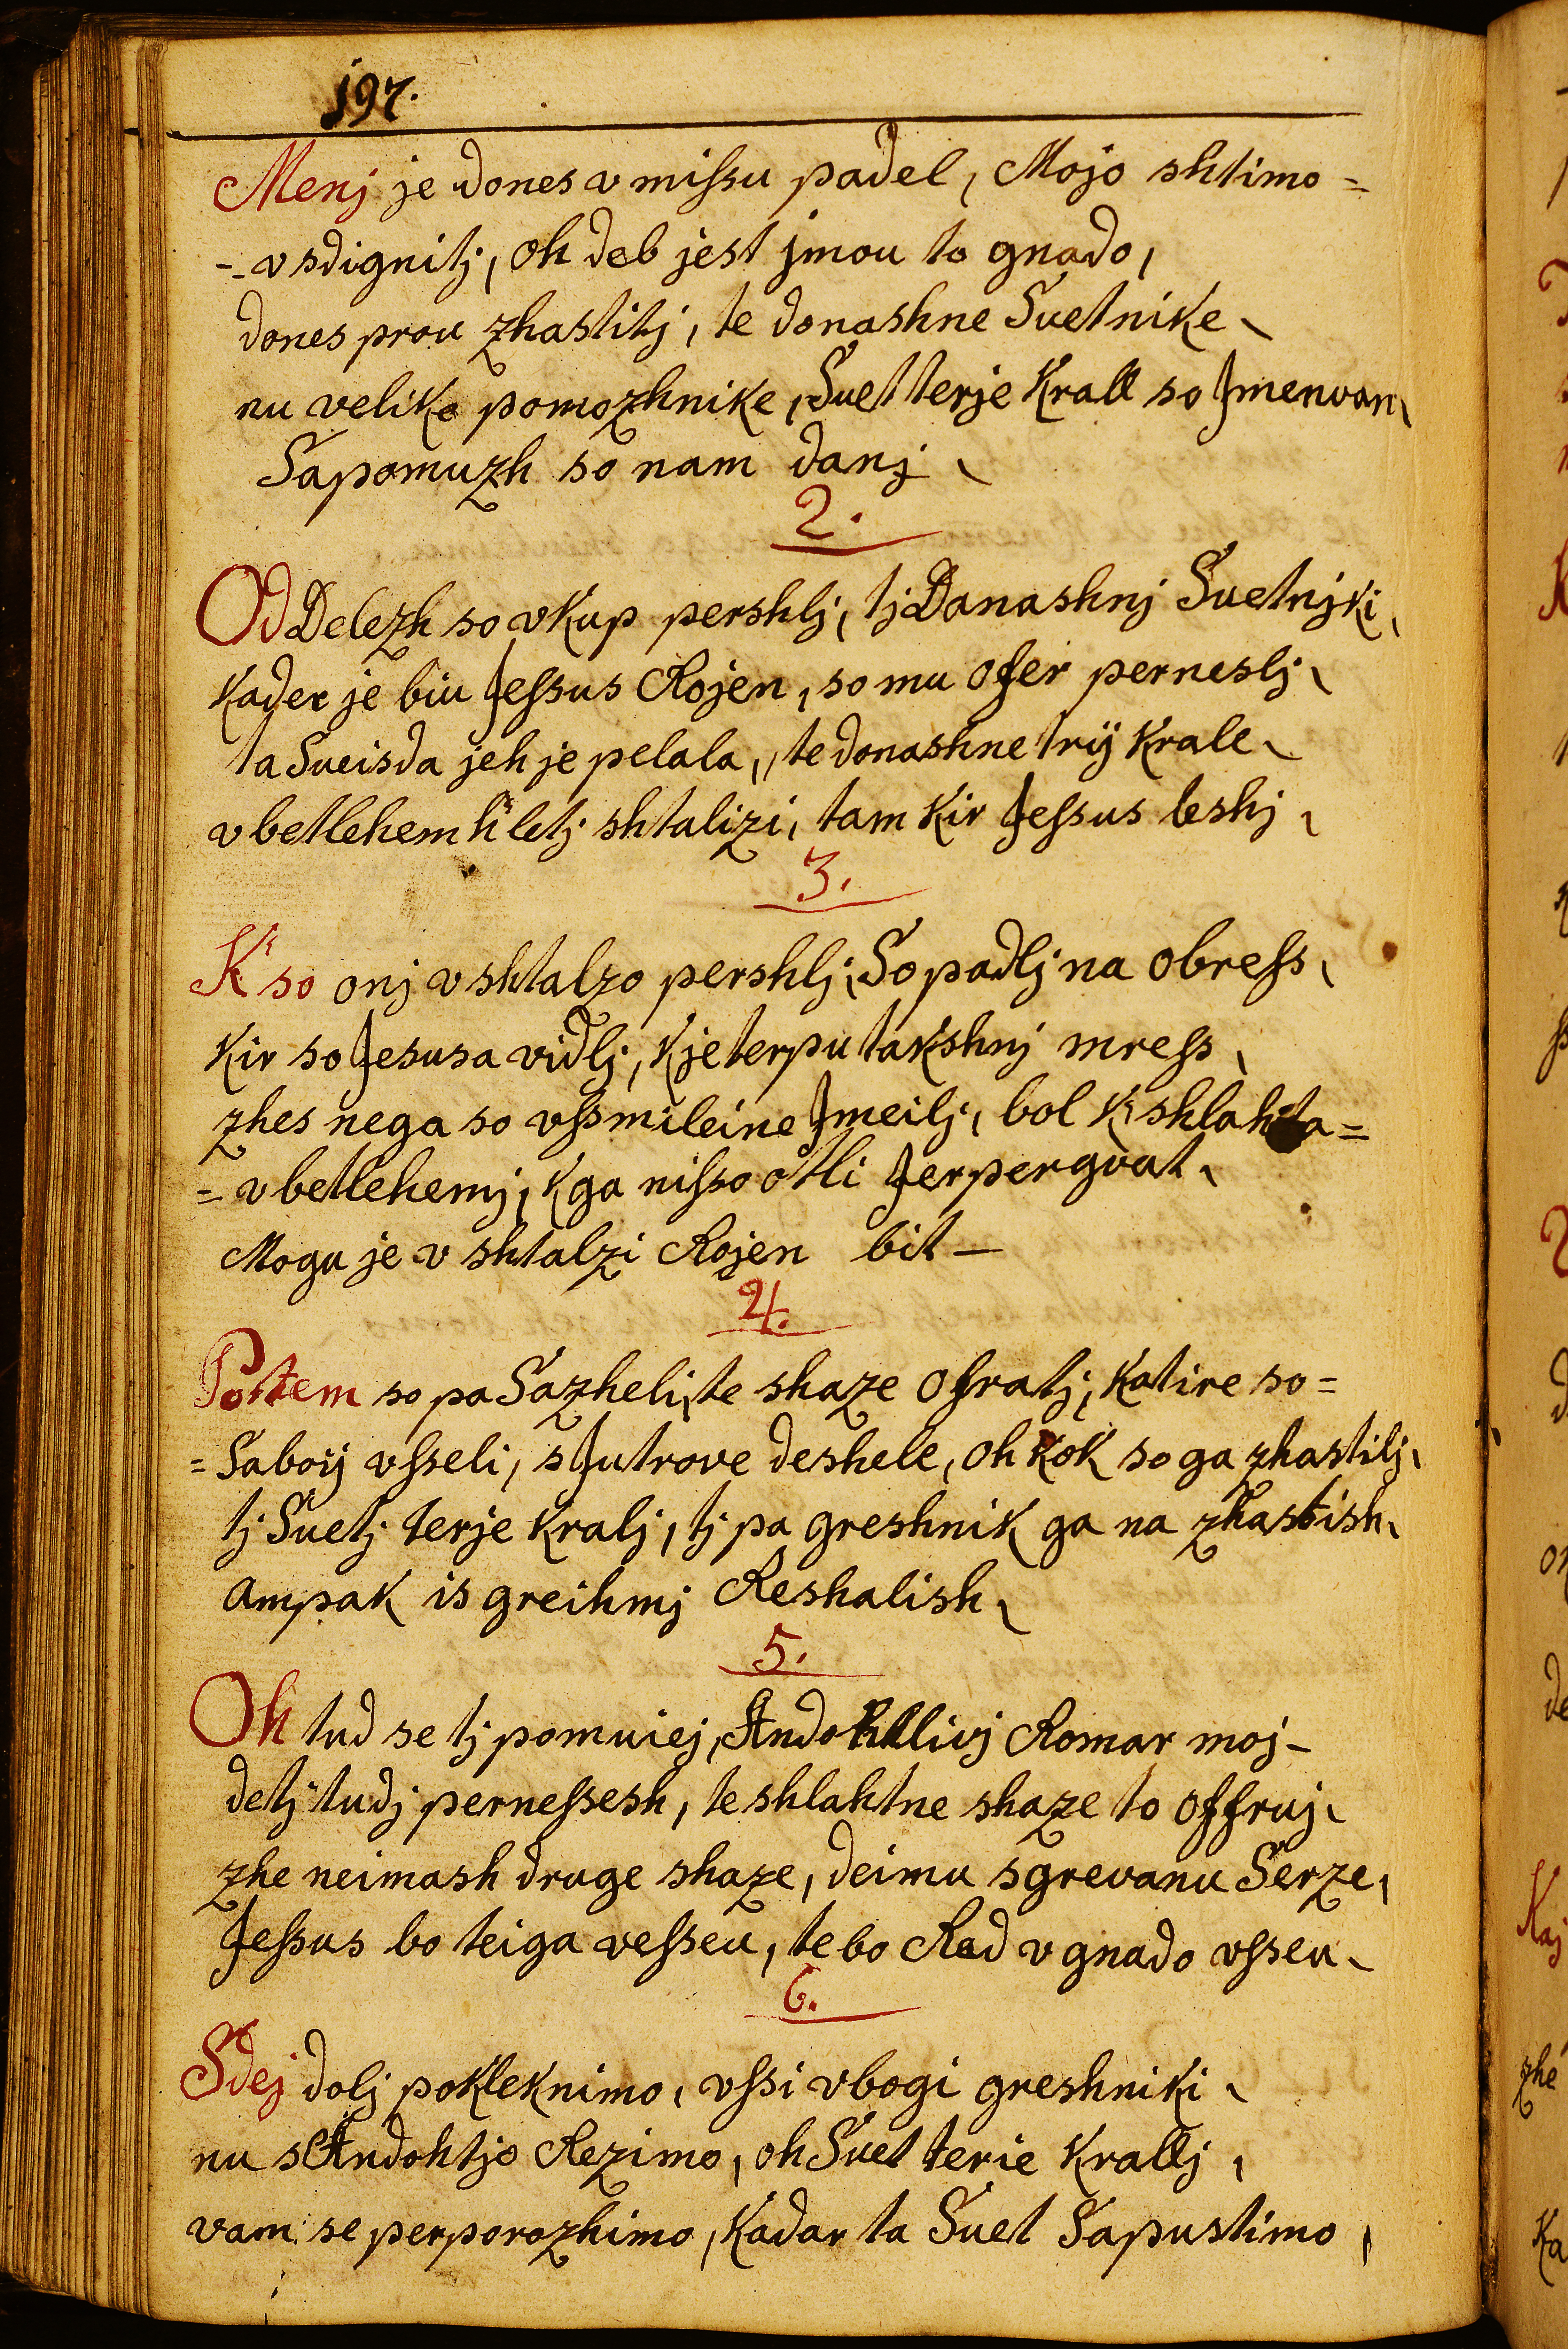 197.
Menj je dones v missu padel, Mojo shtimo =
=. vsdignitj, oh deb jest jmou to gnado,
dones prou zhastitj, te donashne Suetnike
nu velike pomozhnike, Suet terje Krall so Jmenvan
Sapomuzh so nam danj
2.
Od Delezh so vkup pershlj, tj Danashnj Suetnjki,
Kader je biu Jessus Rojen, so mu ofer perneslj
ta Sueisda jeh je pelala, te donashne trij Krale
v betlehem k' letj shtalizi, tam Kir Jessus leshj
3.
K' so onj v shtalzo pershlj, So padlj na obress
Kir so Jesusa vidlj, K je terpu takshnj mress
zhes nega so vssmileine Jmeilj, bol K shlahta =
= v betlehemj, K ga nisso otli Jerpergvat
Mogu je v shtalzi Rojen bit —
4.
Potem so pa Sazheli, te shaze ofratj, Katire so =
= Saboij vsseli, s Jutrove deshele, oh Kok so ga zhastilj
tj Suetj terje Kralj, tj pa greshnik ga na zhastish
ampak is greihmj Reshalish
5.
Oh tud se tj pomuiej, Andohtlivj Romar moj —
detj tudj pernessesh, te shlahtne shaze to offruj
zhe neimash druge shaze, deimu sgrevanu Serze,
Jessus bo teiga vesseu, te bo Rad v gnado vsseu
6.
Sdej dolj pokleknimo, vssi vbogi greshniki
nu s Andohtjo Rezimo, oh Suet terie Krallj,
vam se perporozhimo, Kadar ta Suet Sapustimo,